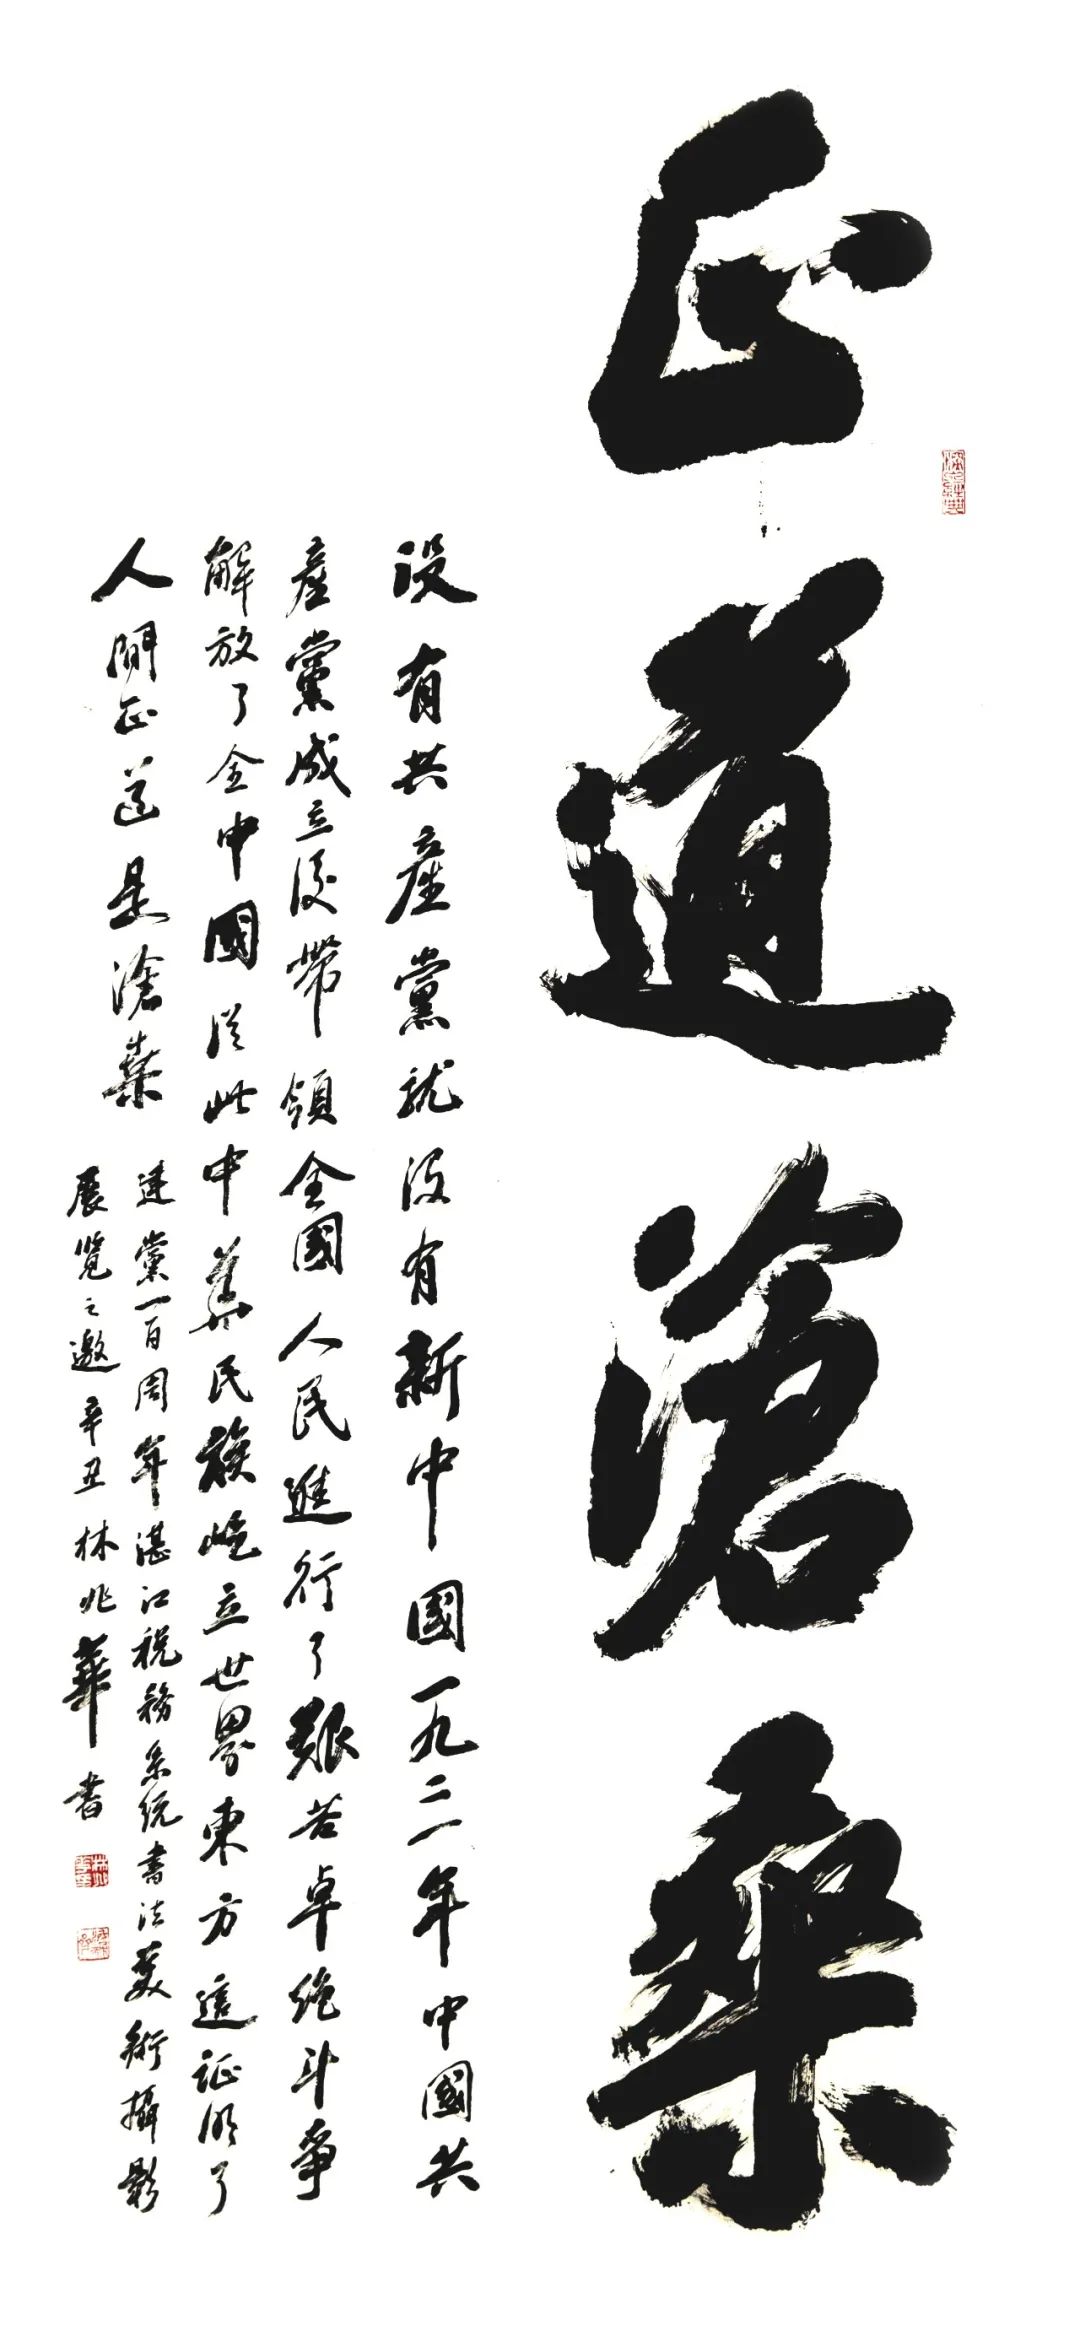 正道滄桑
没有共產黨就没有新中國一九二一年中國共
產黨成立後帶領全國人民進行了艱苦卓绝斗爭
解放了全中國从此中華民族屹立世界東方這证明了
人間正道是滄桑
建黨一百周年湛江税務系统書法美術攝影
展覽之邀辛丑林兆華書